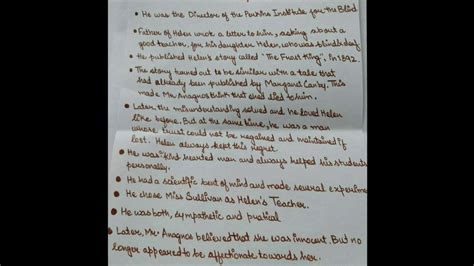 • He was the Director of the Perkins Institute for the Blind
• Father of Helen wrote a letter to him, asking about a
good teacher, for his daughter Helen, who was blind & deaf
• He published Helen's story called "The Frost King", in 1892.
• The story turned out to be similar with a tale that
had already been published by Margaret Canby. This
made Mr. Anagnos think that
lied to him.
• Later, the misunderstanding solved and he loved Helen
like before. But at the same time, he was a man
whose trust could not be regained and maintained if
lost. Helen always kept this regret.
• He was "kind hearted man and always helped his students
personally.
• He had a scientific bent of mind and made several experime
• He chose Miss Sullivan as Helen's Teacher.
• He was both, sympathetic and
• Later, Mr. Anagnos believed that she was innocent. But no
longer appeared to be affectionate towards her.